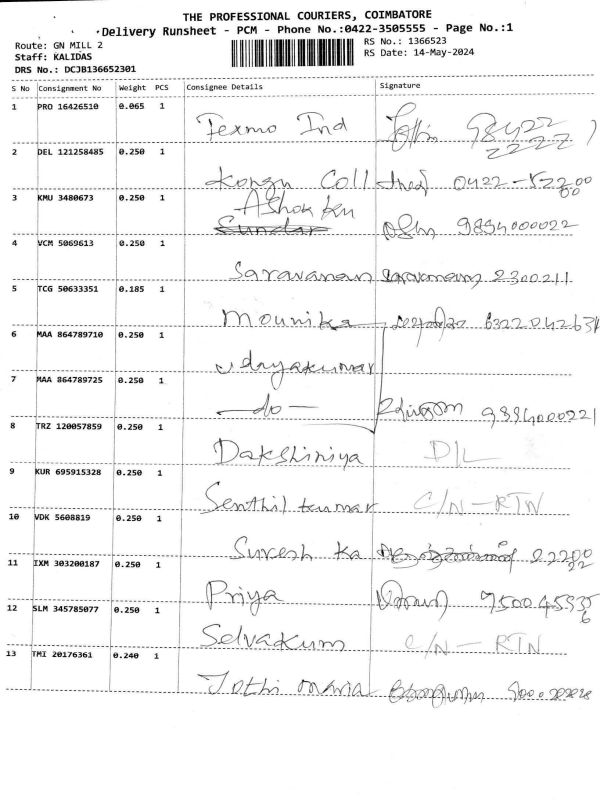 THE PROFESSIONAL COURIERS, COIMBATORE
Delivery Runsheet - PCM - Phone No.:0422-3505555 - Page No.:1
Route: GN MILL 2
RS No.: 1366523
Staff: KALIDAS
RS Date: 14-May-2024
DRS No.: DCJB136652301
S No Consignment No Weight PCS Consignee Details Signature
1 PRO 16426510 0.065 1
Texmo Ind 98422
22227
2 DEL 121258485 0.250 1
Kongu Coll
Ashok Ku
3 KMU 3480673 0.250 1
Sundar 9894000022
4 VCM 5069613 0.250 1
Saravanan 2300211
5 TCG 50633351 0.185 1
Mounika
6 MAA 864789710 0.250 1
Udayakumar
7 MAA 864789725 0.250 1
-do- 9894000221
8 TRZ 120057859 0.250 1
Dakshiniya D/L
9 KUR 695915328 0.250 1
Senthil kumar C/N - RTN
10 VDK 5608819 0.250 1
Suresh Ka
11 IXM 303200187 0.250 1
Priya
12 SLM 345785077 0.250 1
Selvakum C/N - RTN
13 TMI 20176361 0.240 1
Jothi mania